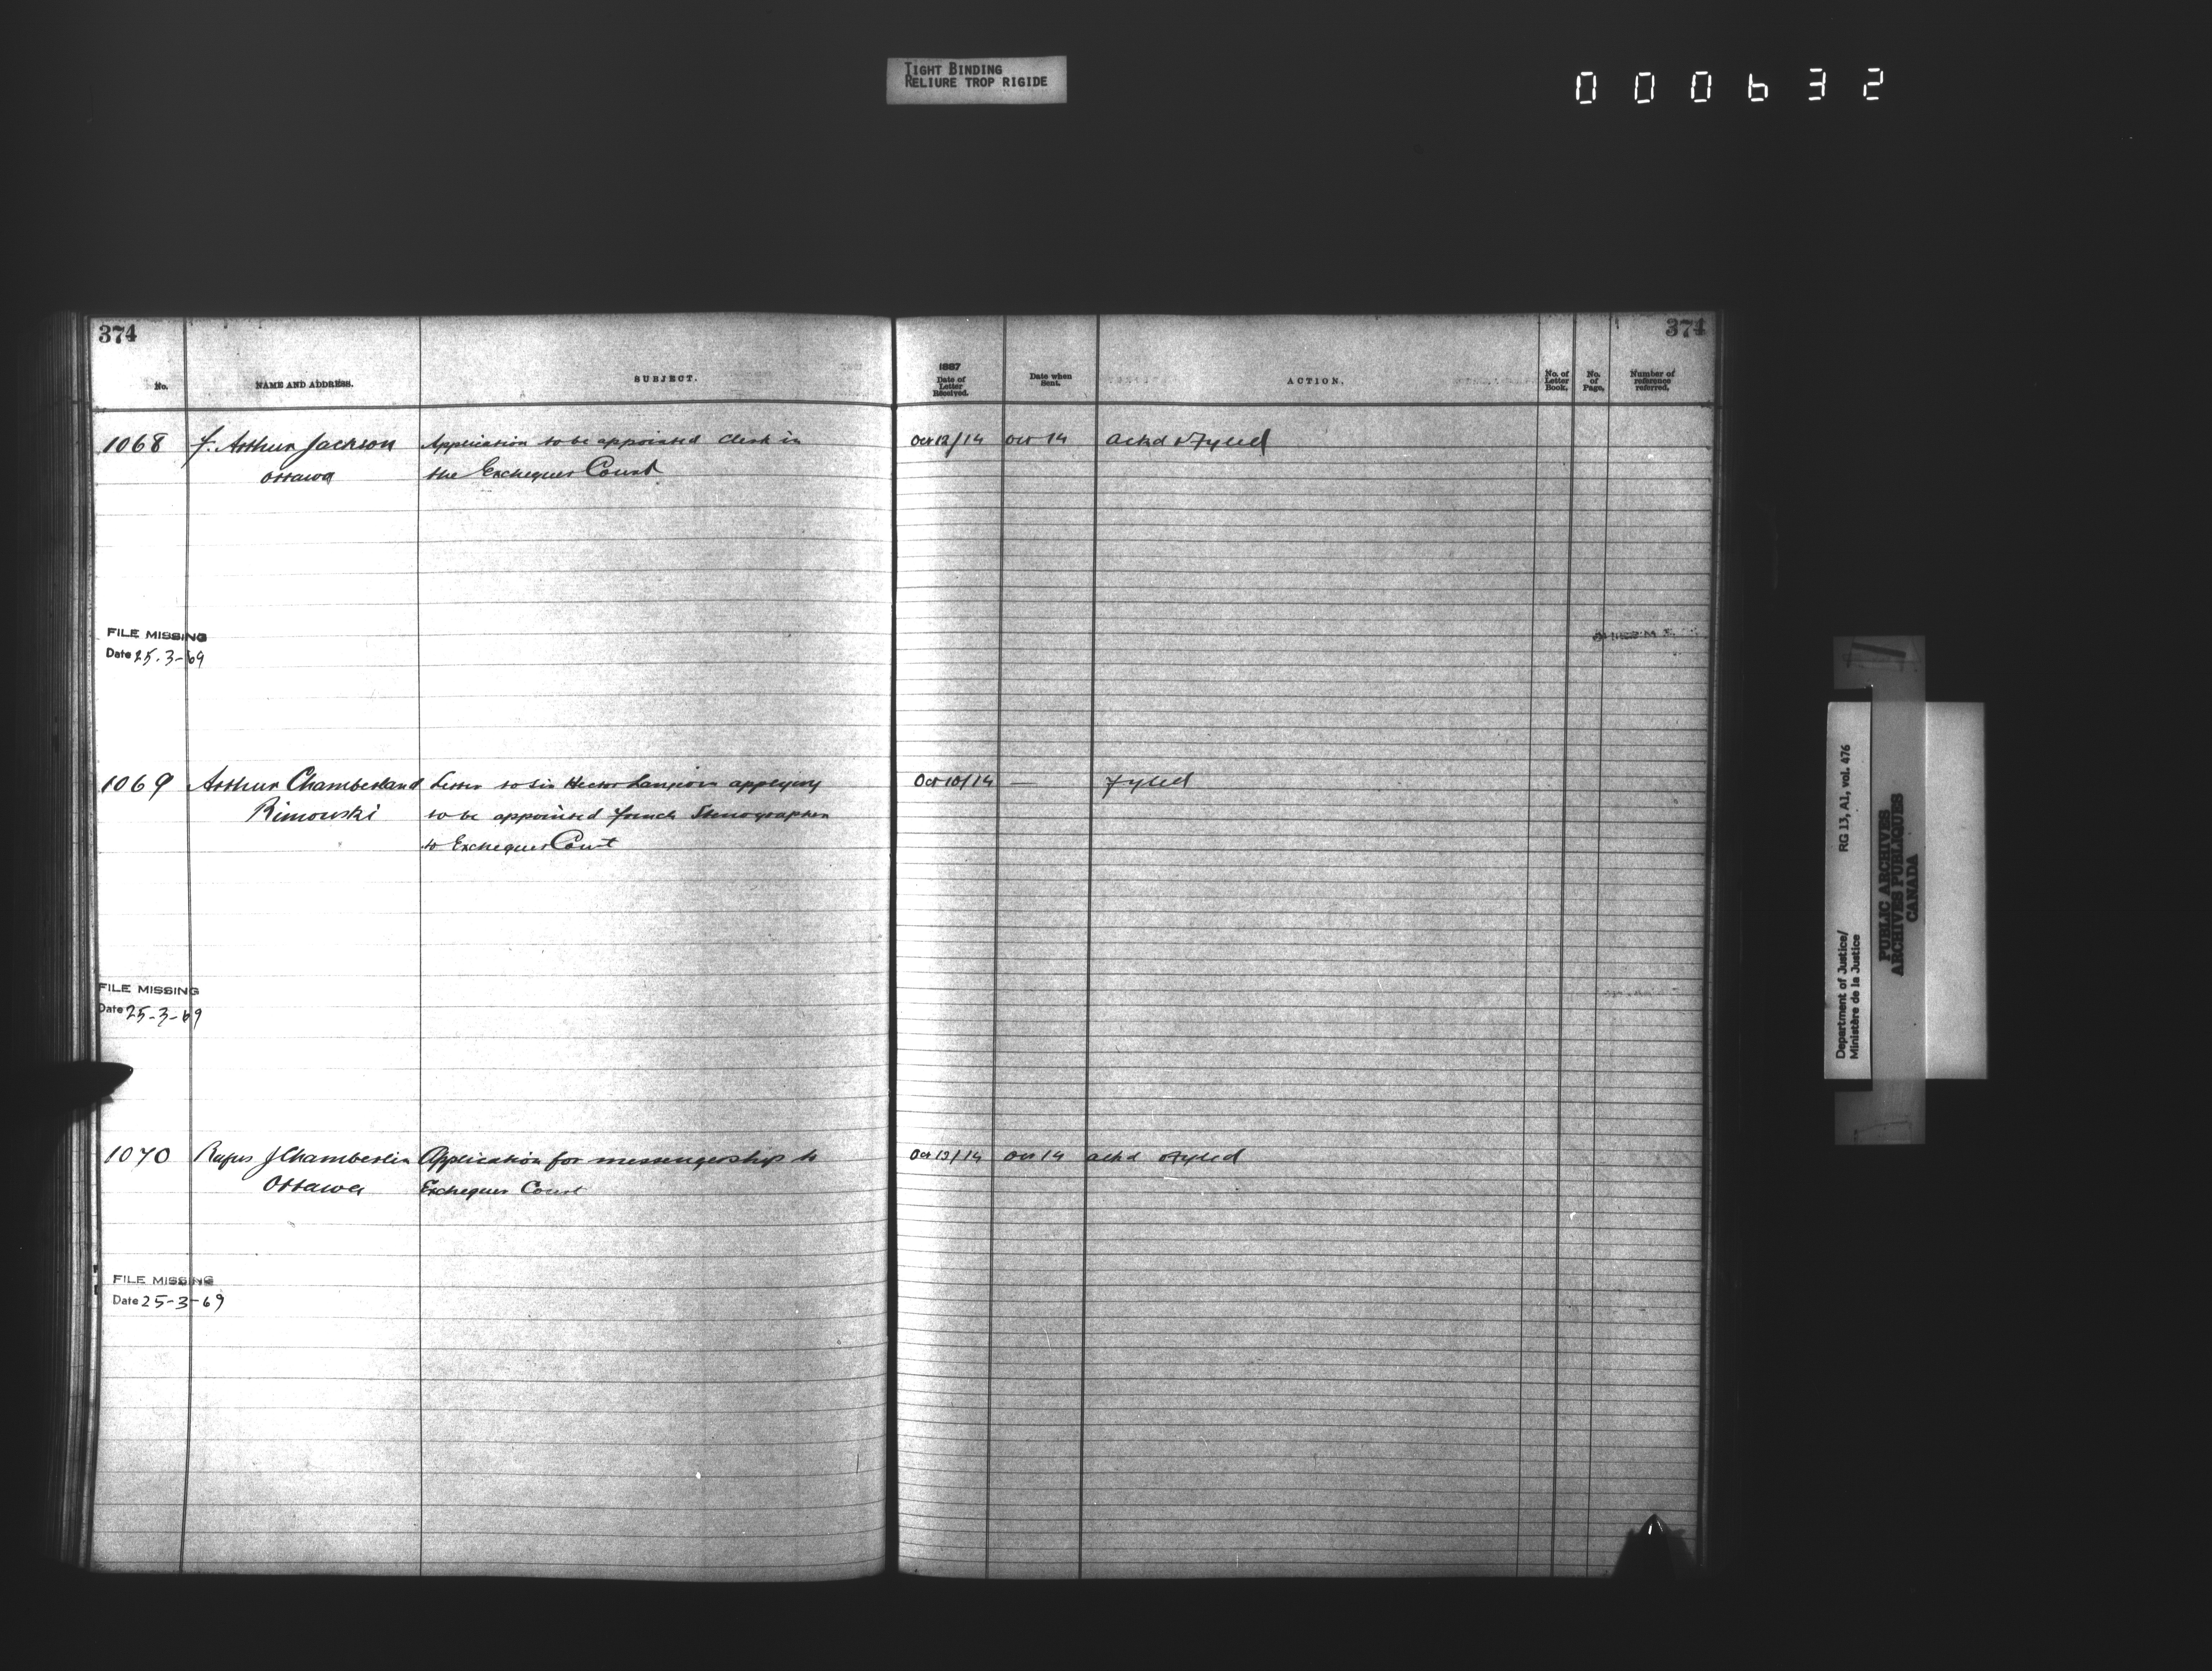 TIGHT BINDING
RELIURE TROP RIGIDE
000632
374
374
No.
NAME AND ADDRESS.
SUBJECT.
1887
Date of
Letter
Received.
Date when
Sent.
ACTION.
No. of
Letter
Book.
No.
of
Page.
Number of
reference
referred.
1068 F. Arthur Jackson Application to be appointed Clerk in Oct 12/14 Oct 14 Ackd & Fyled
Ottawa the Exchequer Court
FILE MISSING
Date 25-3-69
1069 Arthur Chamberland Letter to Sir Hector Langevin applying Oct 10/14 — Fyled
Rimouski to be appointed French Stenographer
to Exchequer Court
FILE MISSING
Date 25-3-69
1070 Rufus J Chamberlin Application for messengership to Oct 12/14 Oct 14 Ackd & Fyled
Ottawa Exchequer Court
FILE MISSING
Date 25-3-69
Department of Justice/ RG 13, A1, vol. 476
Ministère de la Justice
PUBLIC ARCHIVES
ARCHIVES PUBLIQUES
CANADA